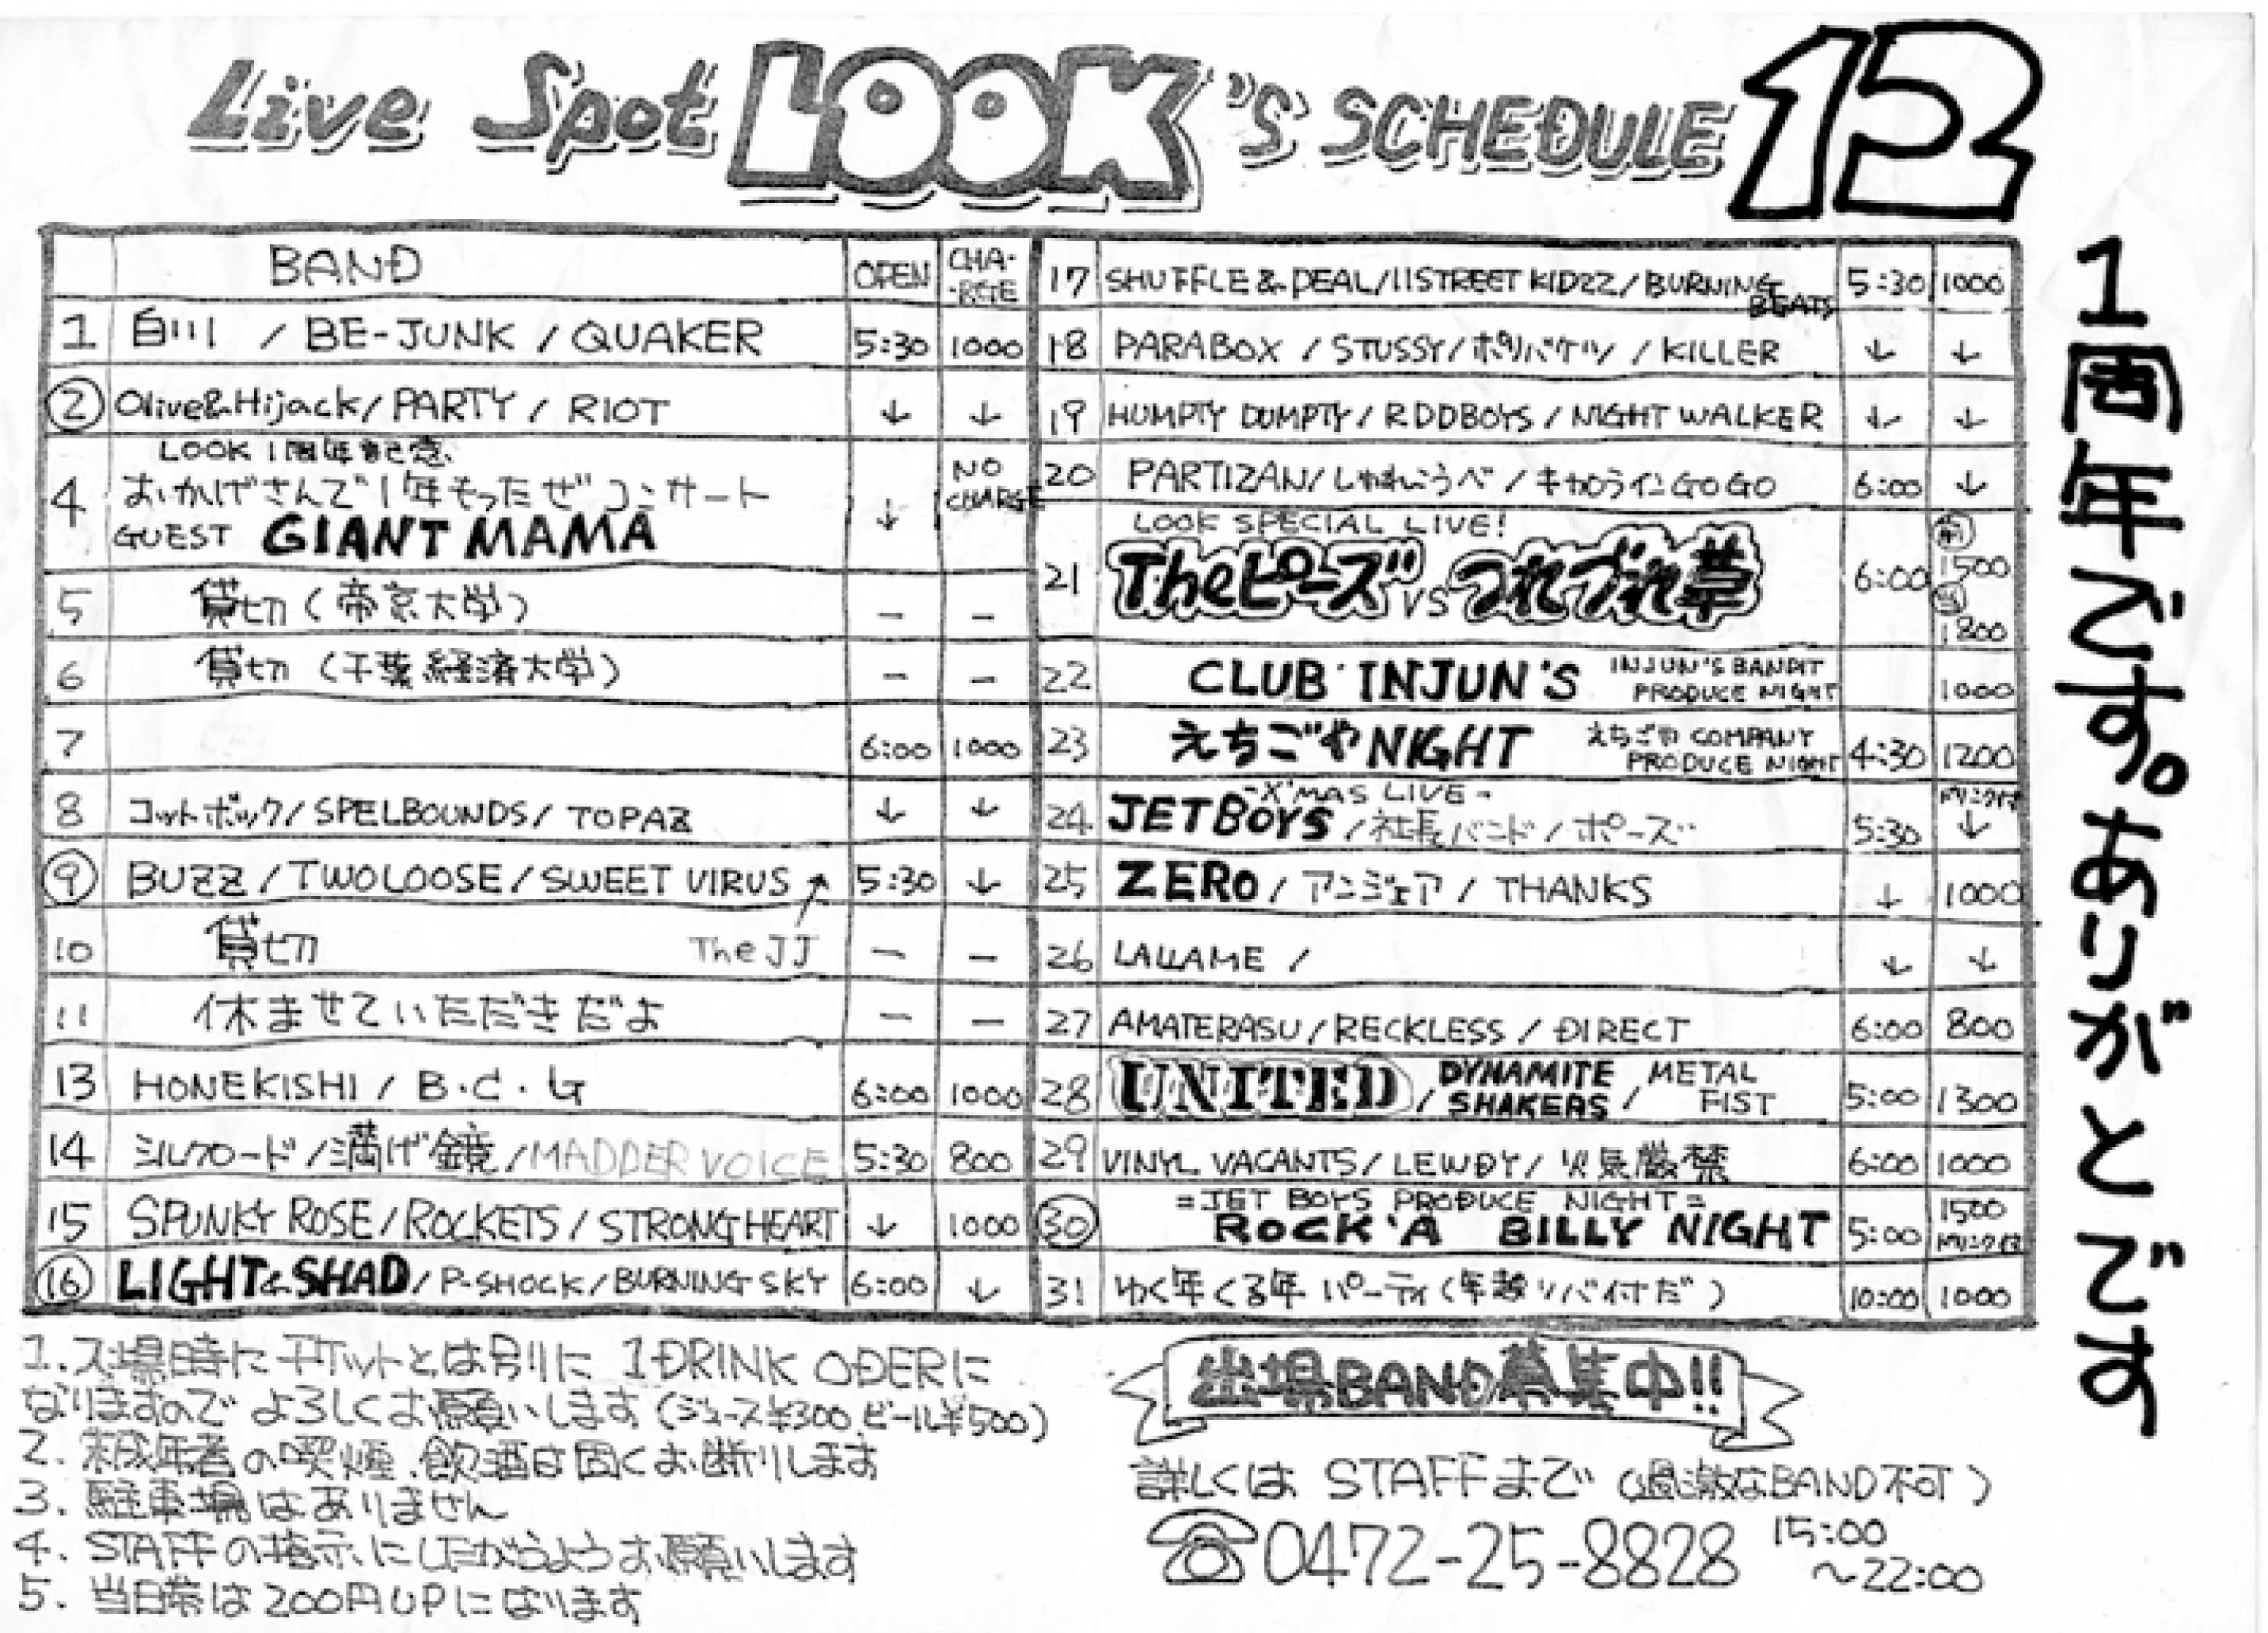 Live Spot LOOK"S SCHEDULE 12
BAND OPEN CHA-RGE
1 白川 / BE-JUNK / QUAKER 5:30 1000
② Olive&Hijack / PARTY / RIOT ↓ ↓
LOOK 1周年記念
4 おかげさんで"1年もったぜ"コンサート ↓ NO CHARGE
GUEST GIANT MAMA
5 貸切(帝京大学) – –
6 貸切(千葉経済大学) – –
7 6:00 1000
8 コットボック/SPELBOUNDS/TOPAZ ↓ ↓
⑨ BUZZ/TWOLOOSE/SWEET VIRUS ↑ 5:30 ↓
10 貸切 The JJ – –
11 休ませていただきだよ – –
13 HONEKISHI / B.C.G 6:00 1000
14 シルクロード/満げ鏡/MADDER VOICE 5:30 800
15 SPUNKY ROSE/ROCKETS/STRONG HEART ↓ 1000
⑯ LIGHT&SHAD/P-SHOCK/BURNING SKY 6:00 ↓
17 SHUFFLE&DEAL/11STREET KIDZZ/BURNING BEATS 5:30 1000
18 PARABOX / STUSSY/ポリバケツ / KILLER ↓ ↓
19 HUMPTY DUMPTY/RDDBOYS/NIGHT WALKER ↓ ↓
20 PARTIZAN/しゃれこうべ/キカラインGOGO 6:00 ↓
LOOK SPECIAL LIVE!
21 Theピーズ VS つれづれ草 6:00 前 1500 当 1800
22 CLUB INJUN'S INJUN'S BANDIT PRODUCE NIGHT 1000
23 えちごやNIGHT えちごや COMPANY PRODUCE NIGHT 4:30 1200
-X'MAS LIVE-
24 JET BOYS/社長バンド/ポーズ 5:30 ドリンク付 ↓
25 ZERO / アンジェア / THANKS ↓ 1000
26 LALLAME / ↓ ↓
27 AMATERASU/RECKLESS/DIRECT 6:00 800
28 UNITED / DYNAMITE SHAKERS / METAL FIST 5:00 1300
29 VINYL VACANTS/LEWDY/火気厳禁 6:00 1000
=JET BOYS PRODUCE NIGHT=
㉚ ROCK'A BILLY NIGHT 5:00 1500 ドリンク付
31 ゆく年くる年パーティ(年越ソバ付だ) 10:00 1000
1周年です。ありがとです
1. 入場時にチケットとは別に 1DRINK ODERに
なりますのでよろしくお願いします(ジュース¥300.ビール¥500)
2. 未成年者の喫煙.飲酒は固くお断りします
3. 駐車場はありません
4. STAFFの指示にしたがうようお願いします
5. 当日券は200円UPになります
出場BAND募集中!!
詳しくは STAFFまで(過激なBAND不可)
☎0472-25-8828 15:00
～22:00